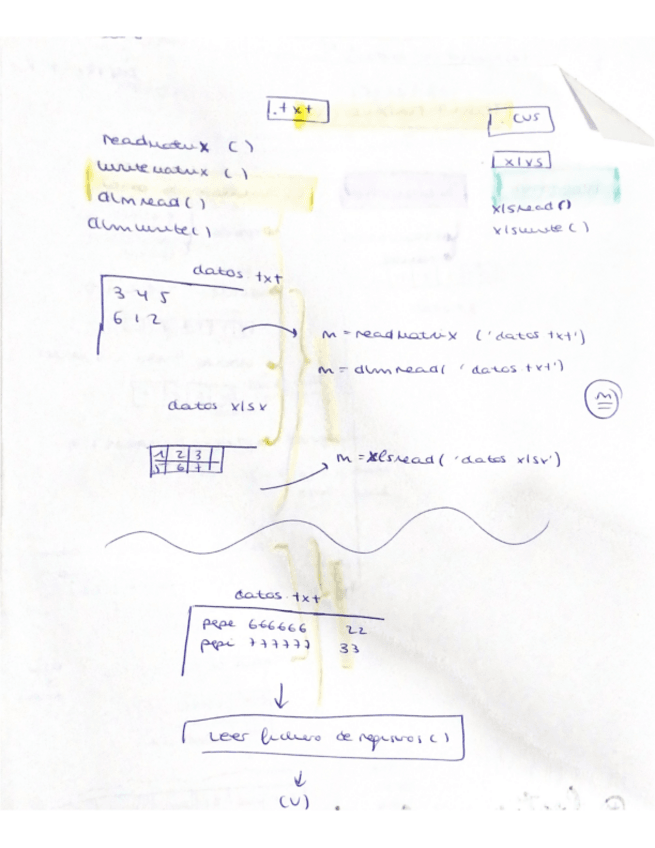 .txt
.cvs
readmatrix ()
writematrix ()
dlmread()
dlmwrite()
xlvs
xlsread()
xlswrite()
datos txt
3 4 5
6 1 2
m = readmatrix ('datos txt')
m = dlmread( 'datos txt')
m
datos xlsx
1 2 3
5 6 7
m = xlsread( 'datos xlsx')
datos.txt
pepe 666666 22
pepi 777777 33
Leer fichero de registros()
(V)